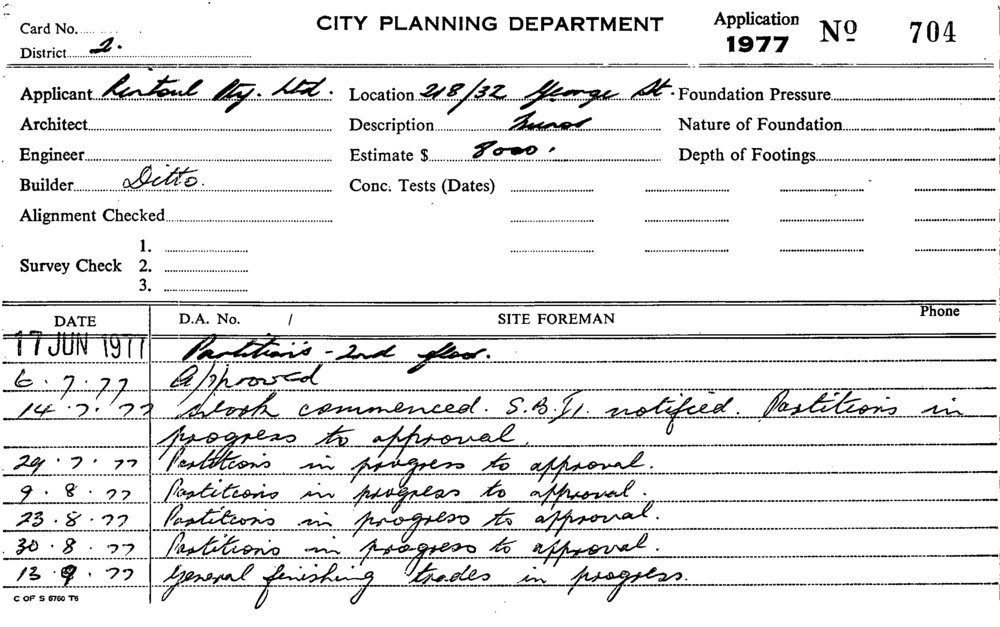 Card No.
CITY PLANNING DEPARTMENT
Application
1977 Nº 704
District 2.
Applicant Rintoul Pty. Ltd. Location 218/32 George St. Foundation Pressure
Architect Description Nature of Foundation
Engineer Estimate $ 8000. Depth of Footings
Builder Ditto. Conc. Tests (Dates)
Alignment Checked
1.
Survey Check 2.
3.
DATE D.A. No. / SITE FOREMAN Phone
17 JUN 1977 Partitions - 2nd floor.
6.7.77 Approved
14.7.77 Work commenced. notified. Partitions in
progress to approval.
29.7.77 Partitions in progress to approval.
9.8.77 Partitions in progress to approval.
23.8.77 Partitions in progress to approval.
30.8.77 Partitions in progress to approval.
13.9.77 General finishing trades in progress.
C OF S 6760 T6